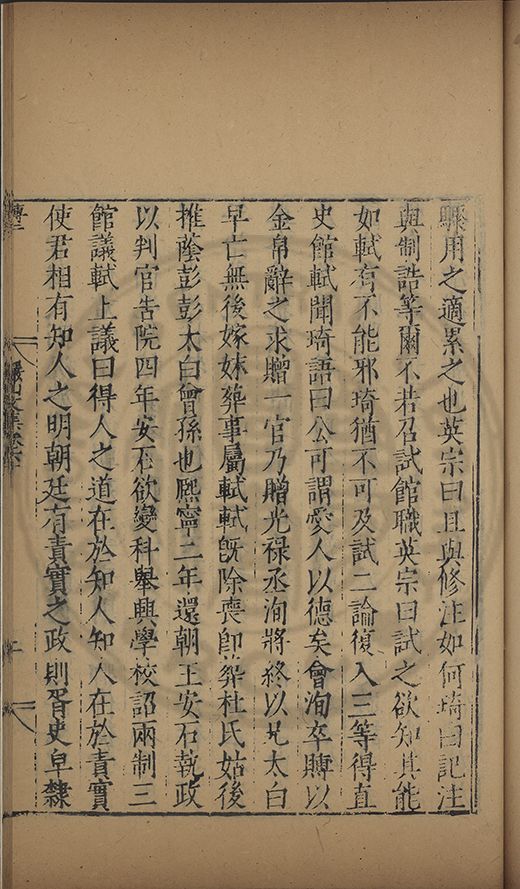 驟用之適累之也英宗曰且與修注如何琦曰記注
與制誥等爾不若召試館職英宗曰試之欲知其能
如軾有不能邪琦猶不可及試二論復入三等得直
史館軾聞琦語曰公可謂愛人以德矣會洵卒賻以
金帛辭之求贈一官乃贈光禄丞洵將終以兄太白
早亡無後嫁妹葬事屬軾軾旣除喪卽葬杜氏姑後
推蔭彭彭太白曾孫也熈寧二年還朝王安石執政
以判官告院四年安石欲變科舉興學校詔兩制三
館議軾上議曰得人之道在於知人知人在於責實
使君相有知人之明朝廷有責實之政則胥史皁隸